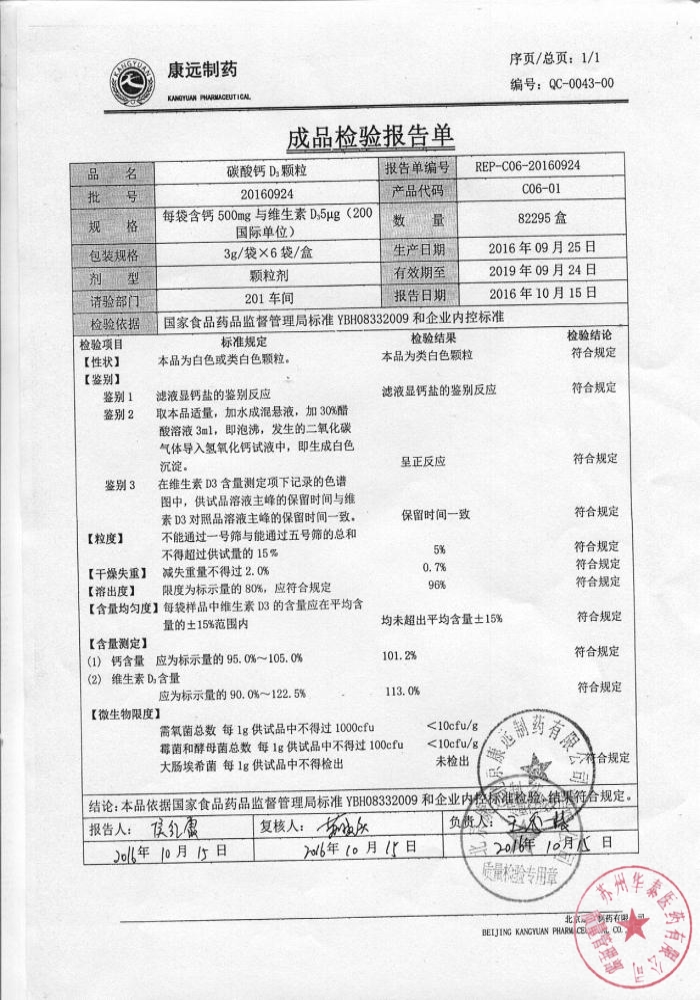 序页/总页：1/1
KANGYUAN
康远制药
KANGYUAN PHARMACEUTICAL
编号：QC-0043-00
成品检验报告单
品 名 碳酸钙 D3 颗粒 报告单编号 REP-C06-20160924
批 号 20160924 产品代码 C06-01
规 格 每袋含钙 500mg 与维生素 D35μg（200国际单位） 数 量 82295 盒
包装规格 3g/袋×6 袋/盒 生产日期 2016 年 09 月 25 日
剂 型 颗粒剂 有效期至 2019 年 09 月 24 日
请验部门 201 车间 报告日期 2016 年 10 月 15 日
检验依据 国家食品药品监督管理局标准 YBH08332009 和企业内控标准
检验项目 标准规定 检验结果 检验结论
【性状】 本品为白色或类白色颗粒。 本品为类白色颗粒 符合规定
【鉴别】
鉴别 1 滤液显钙盐的鉴别反应 滤液显钙盐的鉴别反应 符合规定
鉴别 2 取本品适量，加水成混悬液，加 30%醋
酸溶液 3ml，即泡沸，发生的二氧化碳
气体导入氢氧化钙试液中，即生成白色
沉淀。 呈正反应 符合规定
鉴别 3 在维生素 D3 含量测定项下记录的色谱
图中，供试品溶液主峰的保留时间与维
素 D3 对照品溶液主峰的保留时间一致。 保留时间一致 符合规定
【粒度】 不能通过一号筛与能通过五号筛的总和
不得超过供试量的 15% 5% 符合规定
【干燥失重】 减失重量不得过 2.0% 0.7% 符合规定
【溶出度】 限度为标示量的 80%，应符合规定 96% 符合规定
【含量均匀度】每袋样品中维生素 D3 的含量应在平均含
量的±15%范围内 均未超出平均含量±15% 符合规定
【含量测定】
(1) 钙含量 应为标示量的 95.0%～105.0% 101.2% 符合规定
(2) 维生素 D3含量
应为标示量的 90.0%～122.5% 113.0% 符合规定
【微生物限度】
需氧菌总数 每 1g 供试品中不得过 1000cfu ＜10cfu/g
霉菌和酵母菌总数 每 1g 供试品中不得过 100cfu ＜10cfu/g
大肠埃希菌 每 1g 供试品中不得检出 未检出 符合规定
结论：本品依据国家食品药品监督管理局标准 YBH08332009 和企业内控标准检验，结果符合规定。
报告人： 复核人： 负责人：
2016年 10 月 15 日 2016年 10 月 15 日 2016年 10月 15 日
京康远制药有限公司
质量检验专用章
苏州华泰医药有限公司
BEIJING KANGYUAN PHARMACEUTICAL CO.